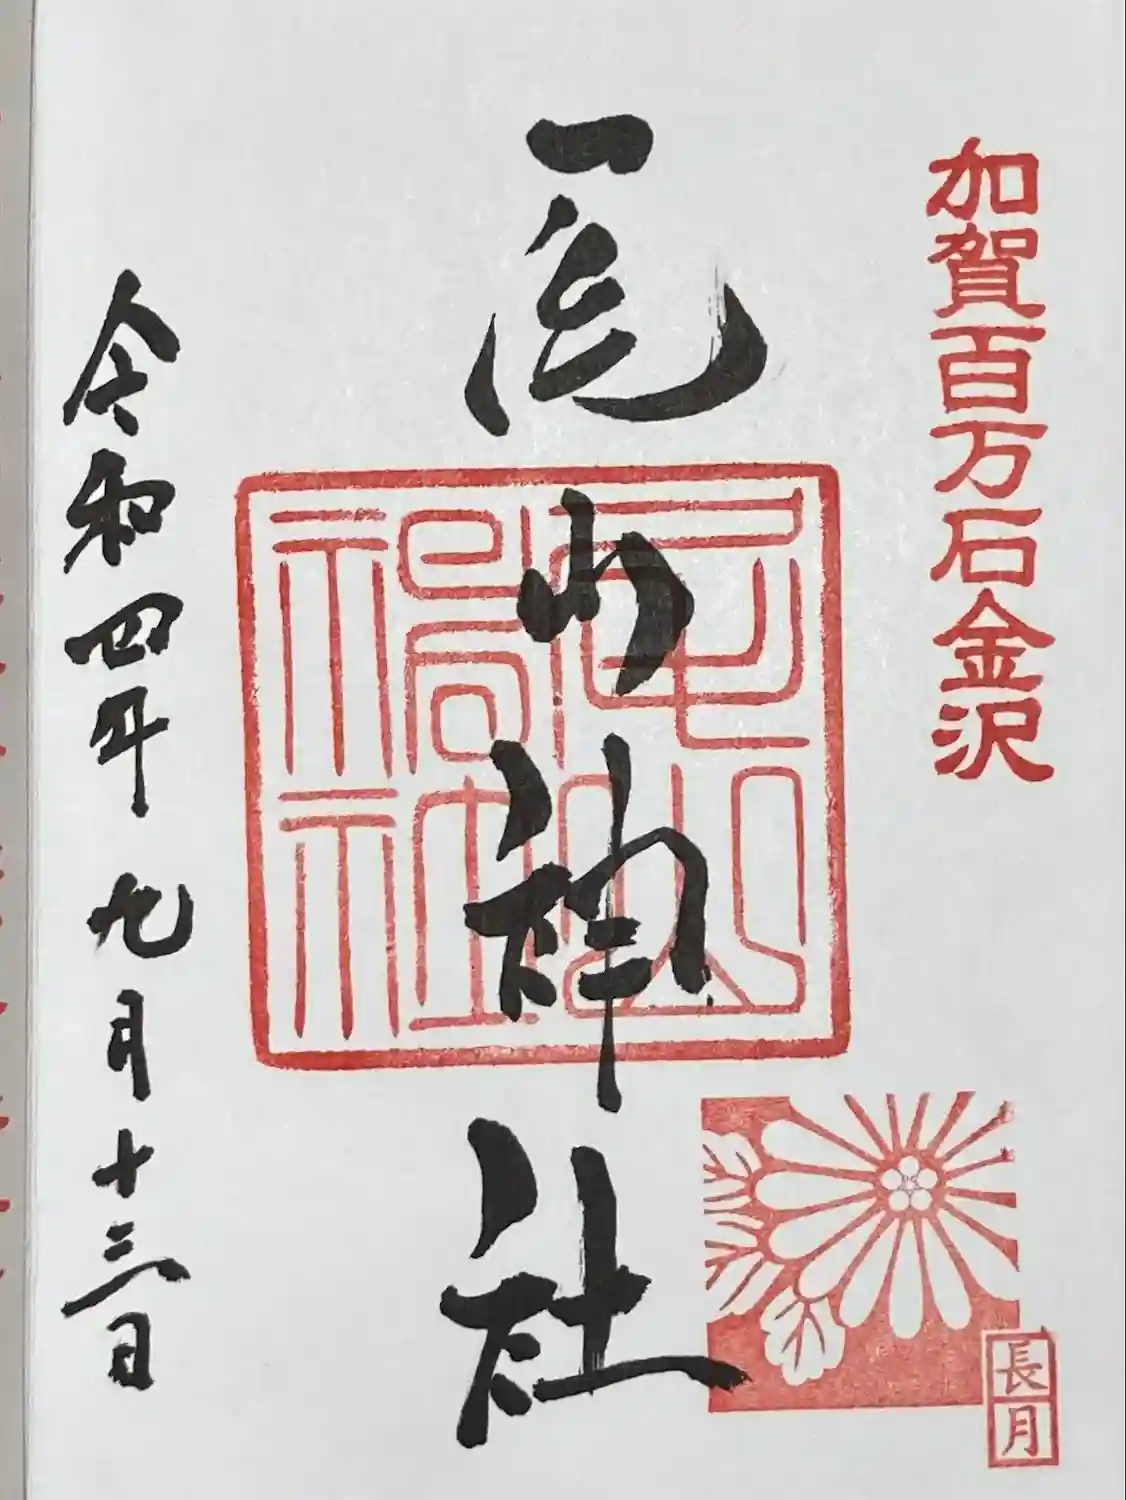 加賀百万石金沢
尾山神社
尾山神社
長月
令和四年九月十三日